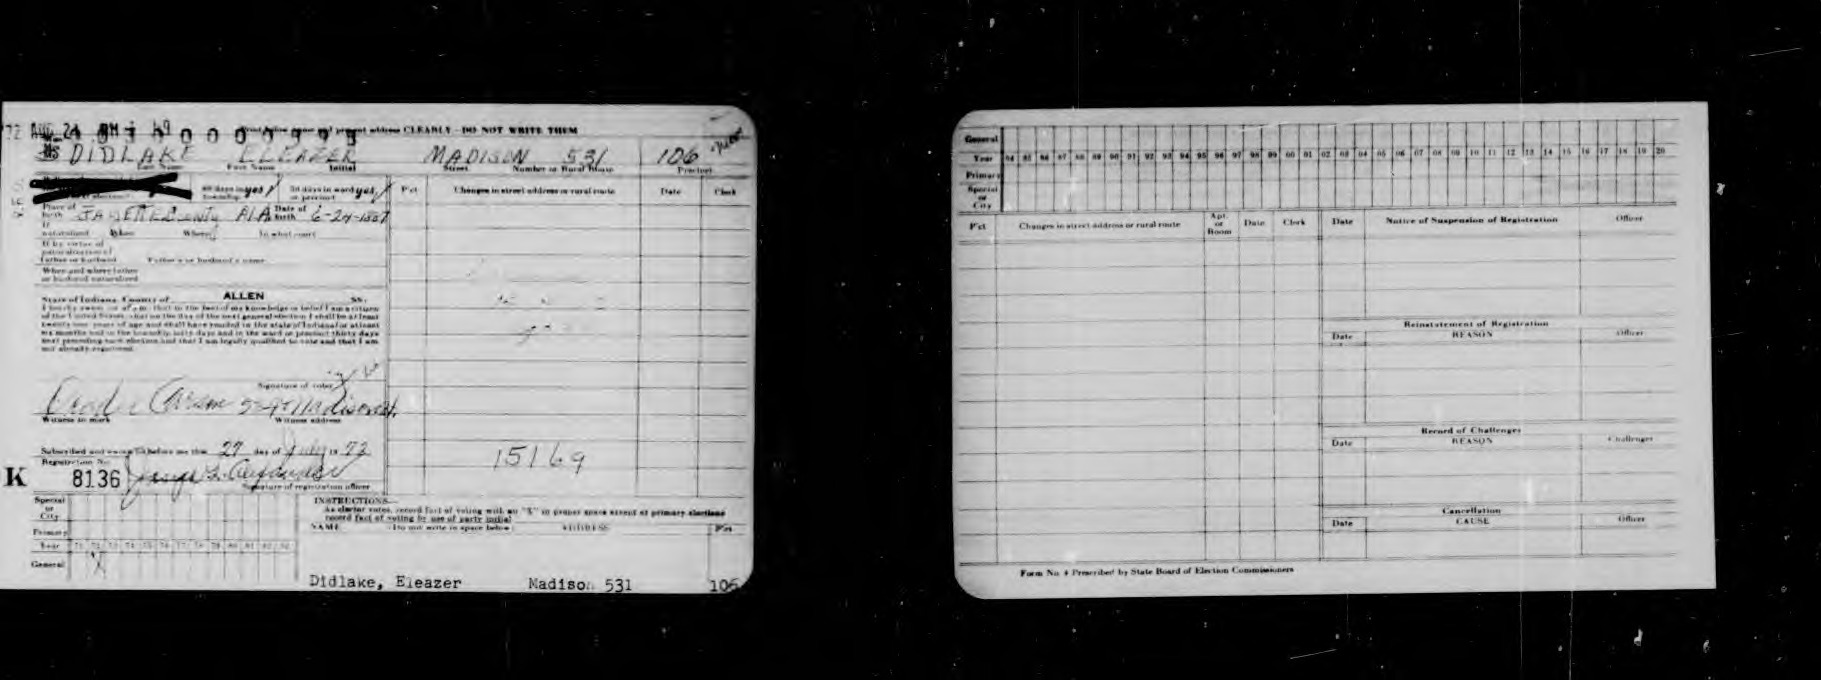 72 AUG 24
name and present address CLEARLY - DO NOT WRITE THEM
DIDLAKE ELEAZER MADISON 531 106
Last Name First Name Initial Street Number or Rural Route Precinct
60 days in township yes 30 days in ward or precinct yes
P'ct Changes in street address or rural route Date Clerk
Place of birth County ALA. Date of birth 6-24-
If naturalized When Where In what court
If by virtue of naturalization of father or husband Father's or husband's name
When and where father or husband naturalized
State of Indiana, County of ALLEN SS.
I hereby swear, or affirm, that to the best of my knowledge or belief I am a citizen
of the United States, that on the day of the next general election I shall be at least
twenty-one years of age and shall have resided in the state of Indiana for at least
six months and in the township sixty days and in the ward or precinct thirty days
next preceding such election and that I am legally qualified to vote and that I am
not already registered.
Signature of voter
Madison St.
Witness to mark Witness address
Subscribed and sworn to before me this 27 day of July 19 72
Registration No.
K 8136
Signature of registration officer
15169
Special or City
Primary
Year 71 72 73 74 75 76 77 78 79 80 81 82 83
General X
INSTRUCTIONS
As elector votes, record fact of voting with an "X" in proper space except at primary elections
record fact of voting by use of party initial
NAME (Do not write in space below) ADDRESS P'ct
Didlake, Eleazer Madison 531 106
General
Year 84 85 86 87 88 89 90 91 92 93 94 95 96 97 98 99 00 01 02 03 04 05 06 07 08 09 10 11 12 13 14 15 16 17 18 19 20
Primary
Special or City
P'ct Changes in street address or rural route Apt. or Room Date Clerk
Date Notice of Suspension of Registration Officer
Reinstatement of Registration
Date REASON Officer
Record of Challenges
Date REASON Challenger
Cancellation
Date CAUSE Officer
Form No. 4 Prescribed by State Board of Election Commissioners